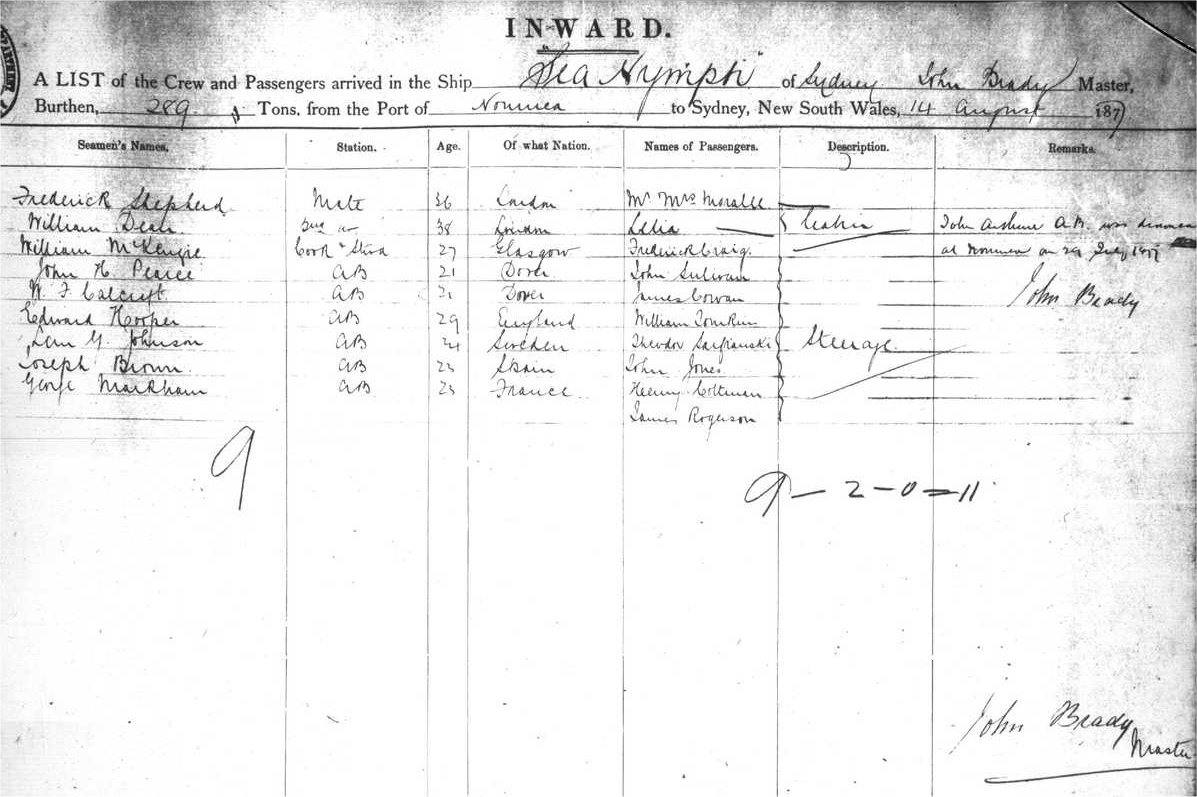 INWARD.
A LIST of the Crew and Passengers arrived in the Ship "Sea Nymph" of Sydney John Brady Master,
Burthen, 289 Tons, from the Port of Noumea to Sydney, New South Wales, 14 August 187
Seamen's Names. Station. Age. Of what Nation. Names of Passengers. Description. Remarks.
Frederick Shepherd Mate 36 London Mr Mrs Moralle
William Dean 38 London Lelia Cabin John A.B. was
William McKenzie Cook & Stwd 27 Glasgow Frederick Craig. at Noumea on 29 July
John H. Pearce AB 21 Dover John Sullivan
W. F. Calcraft AB 21 Dover James Cowan John Brady
Edward Hooper AB 29 England William Tomkin
G Johnson AB 24 Sweden Theodor Steerage
Joseph Brown AB 23 Spain John Jones
George Markham AB 23 France Henry Coltman
James Rogerson
9
9 — 2 — 0 = 11
John Brady
Master